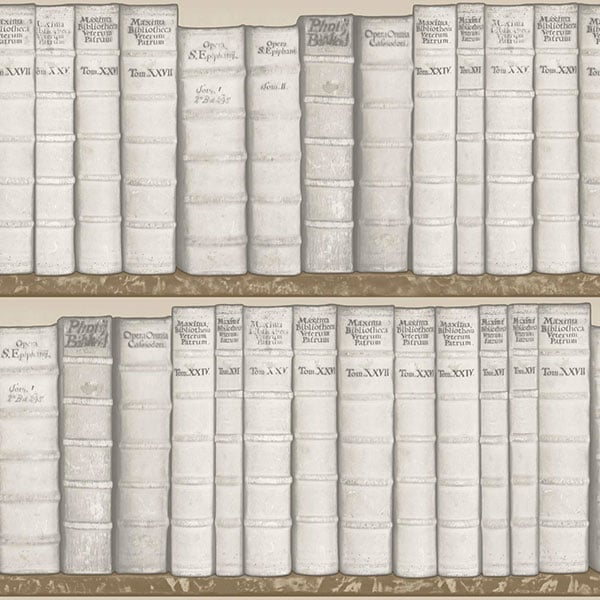 Maxima
Bibliotheca
Veterum
Patrum
Tom. XXVII
Maxima
Bibliotheca
Veterum
Patrum
Tom. XXV
Maxima
Bibliotheca
Veterum
Patrum
Tom. XXVI
Maxima
Bibliotheca
Veterum
Patrum
Tom. XXVII
Opera
S. Epiphanij
Tom. I
Opera
S. Epiphanij
Tom. II
Opera Omnia
Cassiodori
Maxima
Bibliotheca
Veterum
Patrum
Tom. XXIV
Maxima
Bibliotheca
Veterum
Patrum
Tom. XVI
Maxima
Bibliotheca
Veterum
Patrum
Tom. XXV
Maxima
Bibliotheca
Veterum
Patrum
Tom. XXVI
Opera
S. Epiphanij
Tom. I
Opera Omnia
Cassiodori
Maxima
Bibliotheca
Veterum
Patrum
Tom. XXIV
Maxima
Bibliotheca
Veterum
Patrum
Tom. XVI
Maxima
Bibliotheca
Veterum
Patrum
Tom. XXV
Maxima
Bibliotheca
Veterum
Patrum
Tom. XXVI
Maxima
Bibliotheca
Veterum
Patrum
Tom. XXVII
Maxima
Bibliotheca
Veterum
Patrum
Tom. XXVI
Maxima
Bibliotheca
Veterum
Patrum
Tom. XXIV
Maxima
Bibliotheca
Veterum
Patrum
Tom. XVI
Maxima
Bibliotheca
Veterum
Patrum
Tom. XVI
Maxima
Bibliotheca
Veterum
Patrum
Tom. XXVII